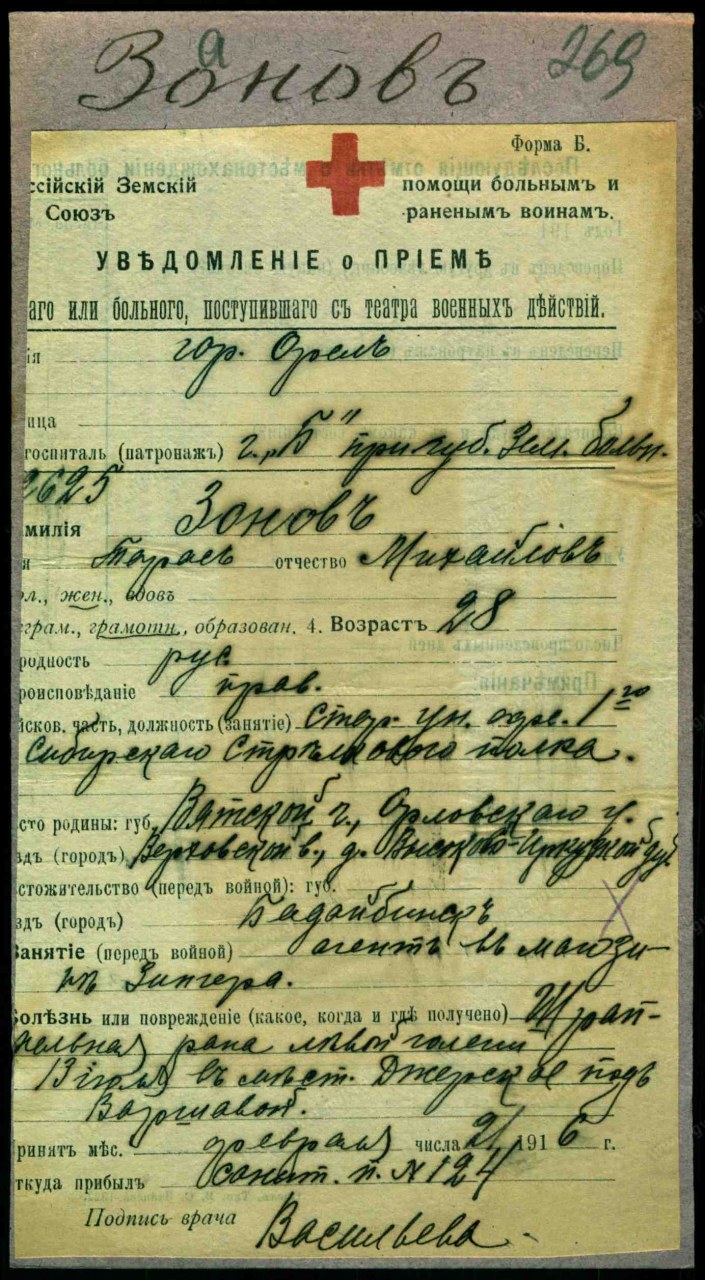 Зановъ 269
а
Форма Б.
ссійскій Земскій помощи больнымъ и
Союзъ раненымъ воинамъ.
УВѢДОМЛЕНІЕ о ПРІЕМѢ
аго или больного, поступившаго съ театра военныхъ дѣйствій.
ія гор. Орелъ
ица
госпиталь (патронажъ) г. „Б" при губ. Зем. больн.
2625
милія Зоновъ
я Тарасъ отчество Михайловъ
ол., жен., вдовъ
грам., грамотн., образован. 4. Возрастъ 28
родность рус.
роисповѣданіе прав.
йсков. часть, должность (занятіе) Стар. ун. офр. 1го
Сибирскаго Стрѣлковаго полка.
сто родины: губ. Вятской г., Орловскаго у.
здъ (городъ) Верховской в., д.
стожительство (передъ войной): губ.
здъ (городъ) Бадайбинскъ
Занятіе (передъ войной) агентъ въ магази-
нѣ Зингера.
Болѣзнь или поврежденіе (какое, когда и гдѣ получено) Шрап-
нельная рана лѣвой голени
13 іюля въ мѣст. подъ
Варшавой.
ринятъ мѣс. февраля числа 21 1916 г.
ткуда прибылъ санит. п. N 124
Подпись врача Васильева